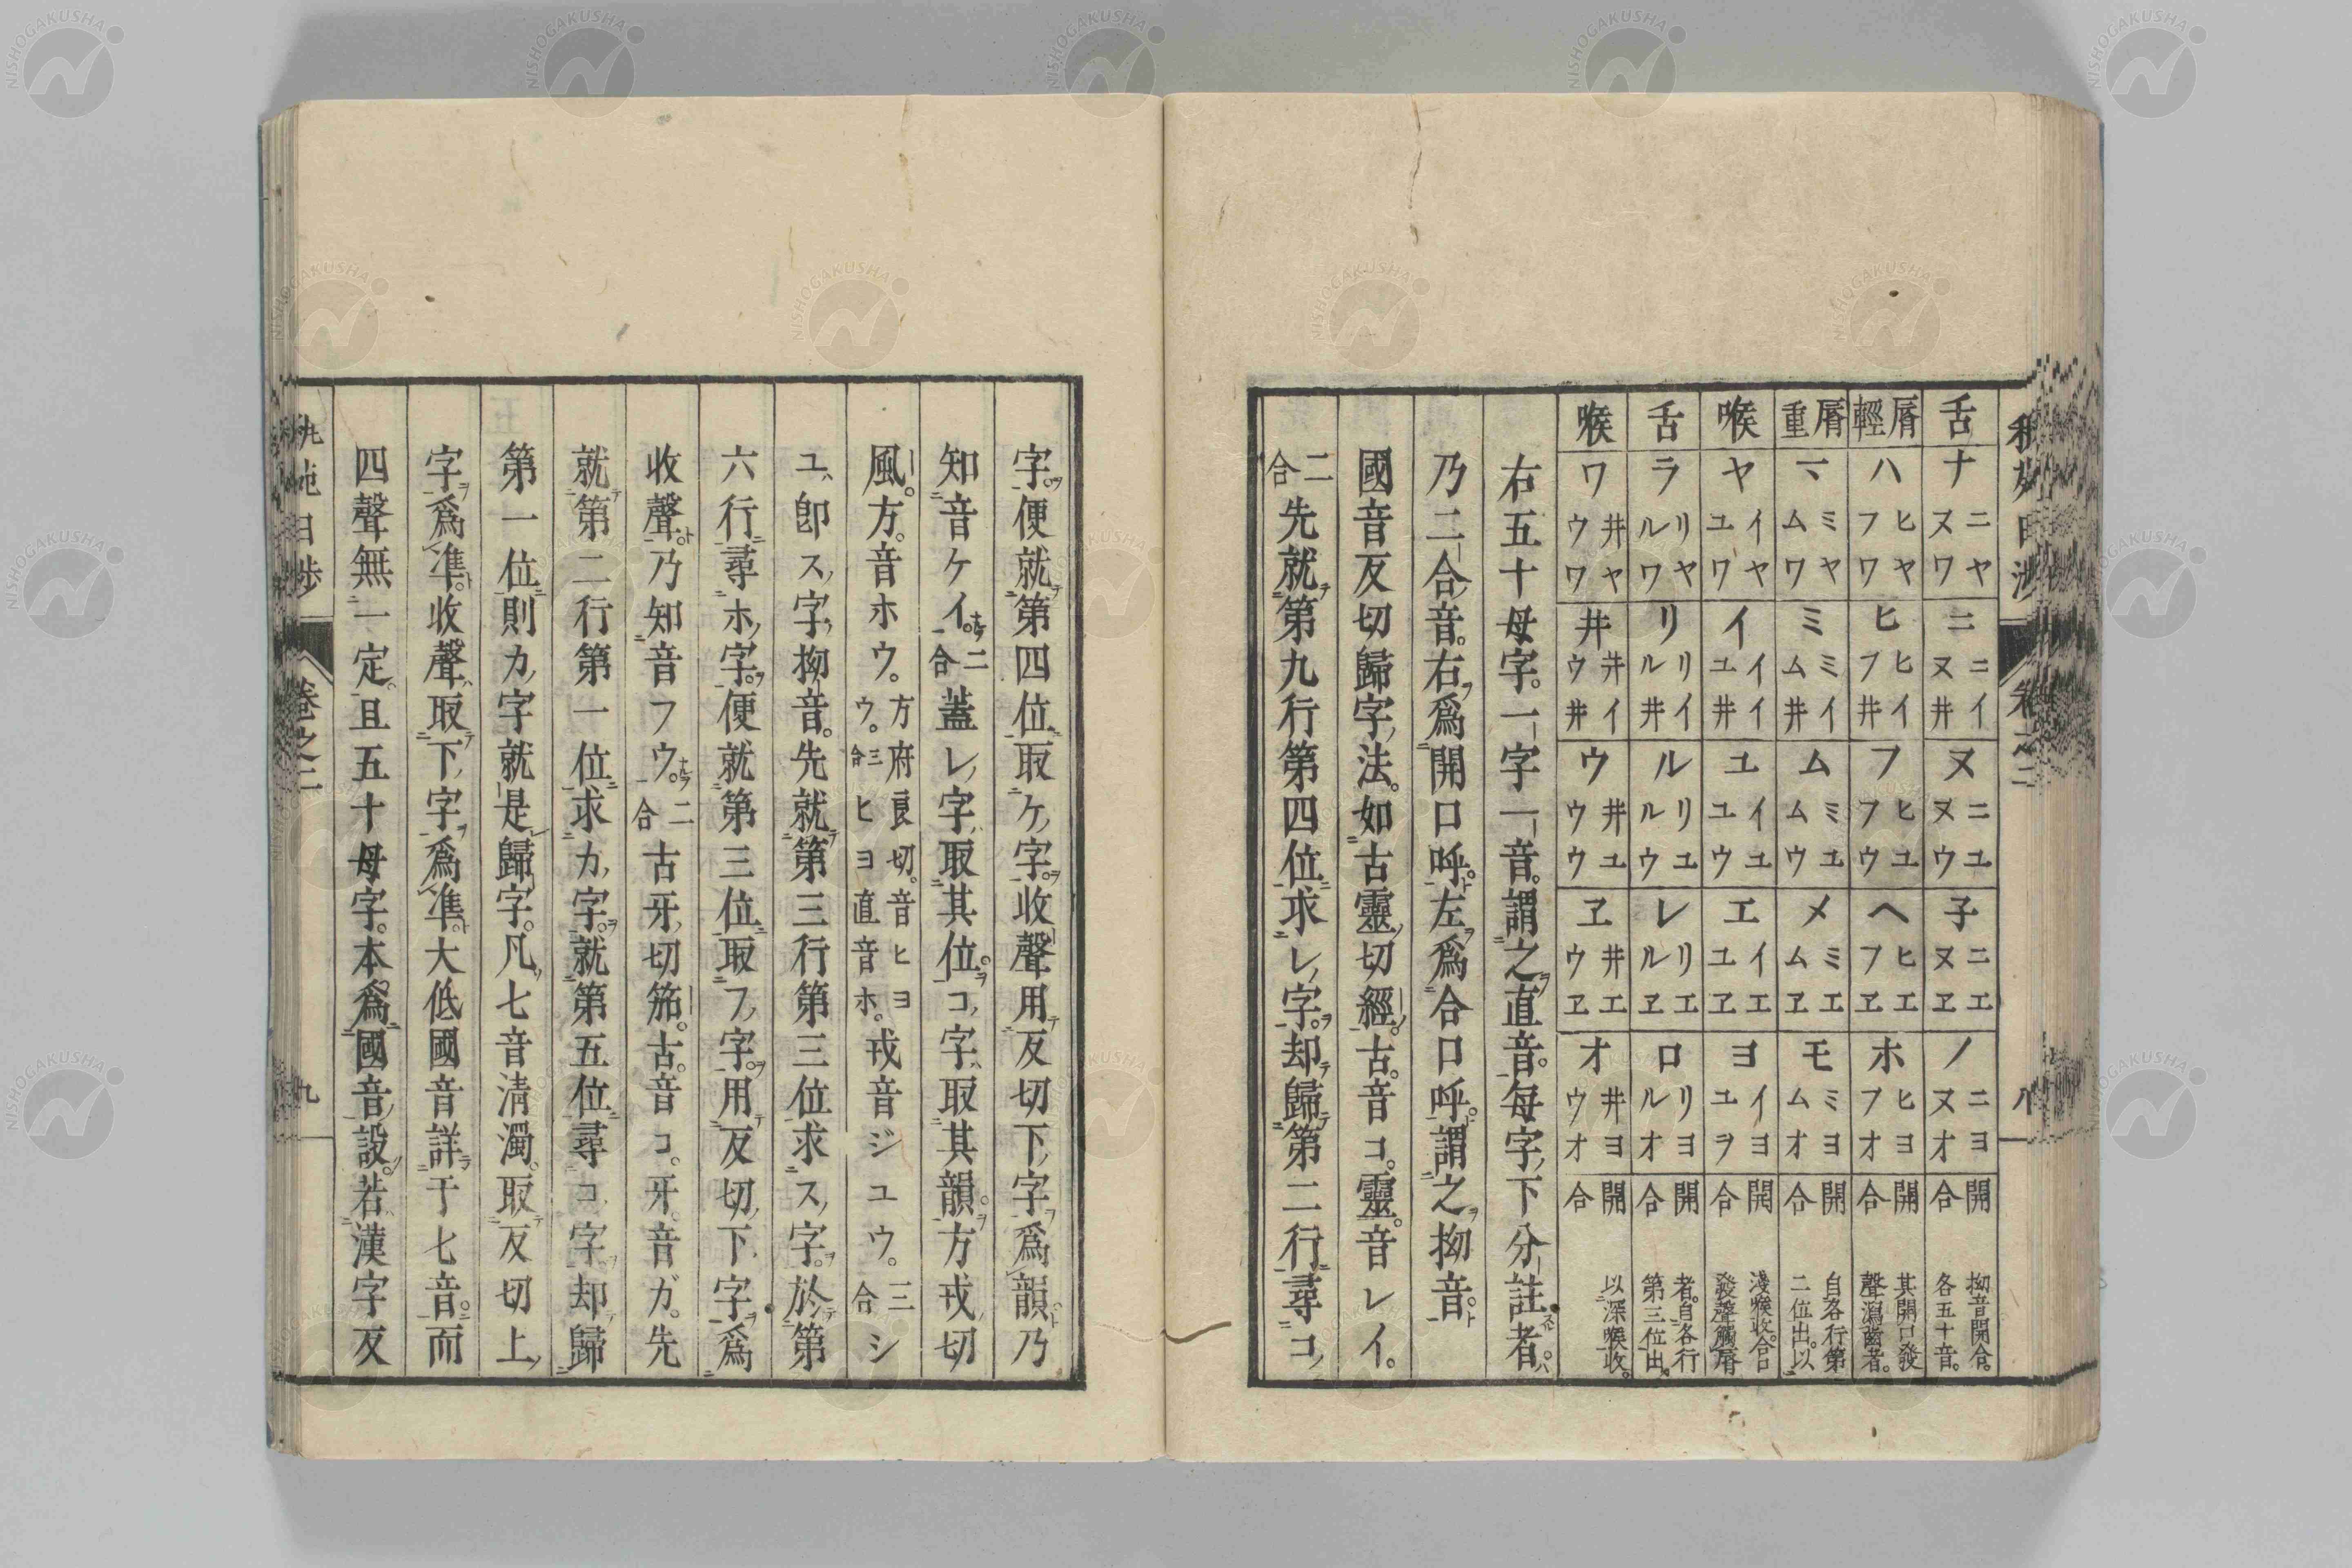 舌 ナ ニヤ ヌワ ニ ニイ ヌ井 ヌ ニユ ヌウ 子 ニエ ヌヱ ノ ニヨ ヌオ 開合 拗音開合。各五十音。
脣輕 ハ ヒヤ フワ ヒ ヒイ フ井 フ ヒユ フウ ヘ ヒエ フヱ ホ ヒヨ フオ 開合 其開口發聲瀉齒者。
脣重 マ ミヤ ムワ ミ ミイ ム井 ム ミユ ムウ メ ミエ ムヱ モ ミヨ ムオ 開合 自各行第二位出。以
喉 ヤ イヤ ユワ イ イイ ユ井 ユ イユ ユウ エ イエ ユヱ ヨ イヨ ユヲ 開合 淺喉收。合口發聲觸脣
舌 ラ リヤ ルワ リ リイ ル井 ル リユ ルウ レ リエ ルヱ ロ リヨ ルオ 開合 者。自各行第三位出。
喉 ワ 井ヤ ウワ 井 井イ ウ井 ウ 井ユ ウウ ヱ 井エ ウヱ オ 井ヨ ウオ 開合 以深喉收。
右五十母字。一字一音。謂之直音。毎字下分註者。
乃二合音。右爲開口呼。左爲合口呼。謂之拗音。
國音反切歸字法。如古靈切經。古。音コ。靈。音レイ。
二合先就第九行第四位求レ字。却歸第二行尋コ
字。便就第四位取ケ字。收聲用反切下字爲韻乃
知音ケイ。二合蓋レ字取其位。コ字取其韻。方戎切
風。方。音ホウ。方府良切。音ヒヨウ。三合ヒヨ直音ホ。戎音ジユウ。三合シ
ユ卽ス字拗音。先就第三行第三位求ス字。於第
六行尋ホ字。便就第三位取フ字。用反切下字爲
收聲。乃知音フウ。二合古牙切笳。古。音コ。牙。音ガ。先
就第二行第一位求カ字。就第五位尋コ字却歸
第一位則カ字就是歸字。凡七音淸濁。取反切上
字爲準。收聲取下字爲準。大低國音詳于七音。而
四聲無一定。且五十母字。本爲國音設。若漢字反
卷之二
九